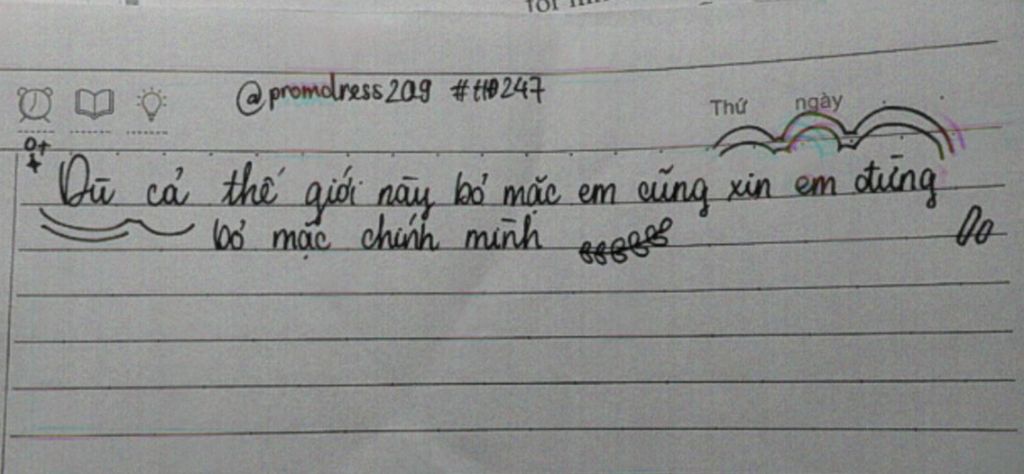 @promdress2a9 #tt0247
Thứ ngày
Dù cả thế giới này bỏ mặc em cũng xin em đừng
bỏ mặc chính mình